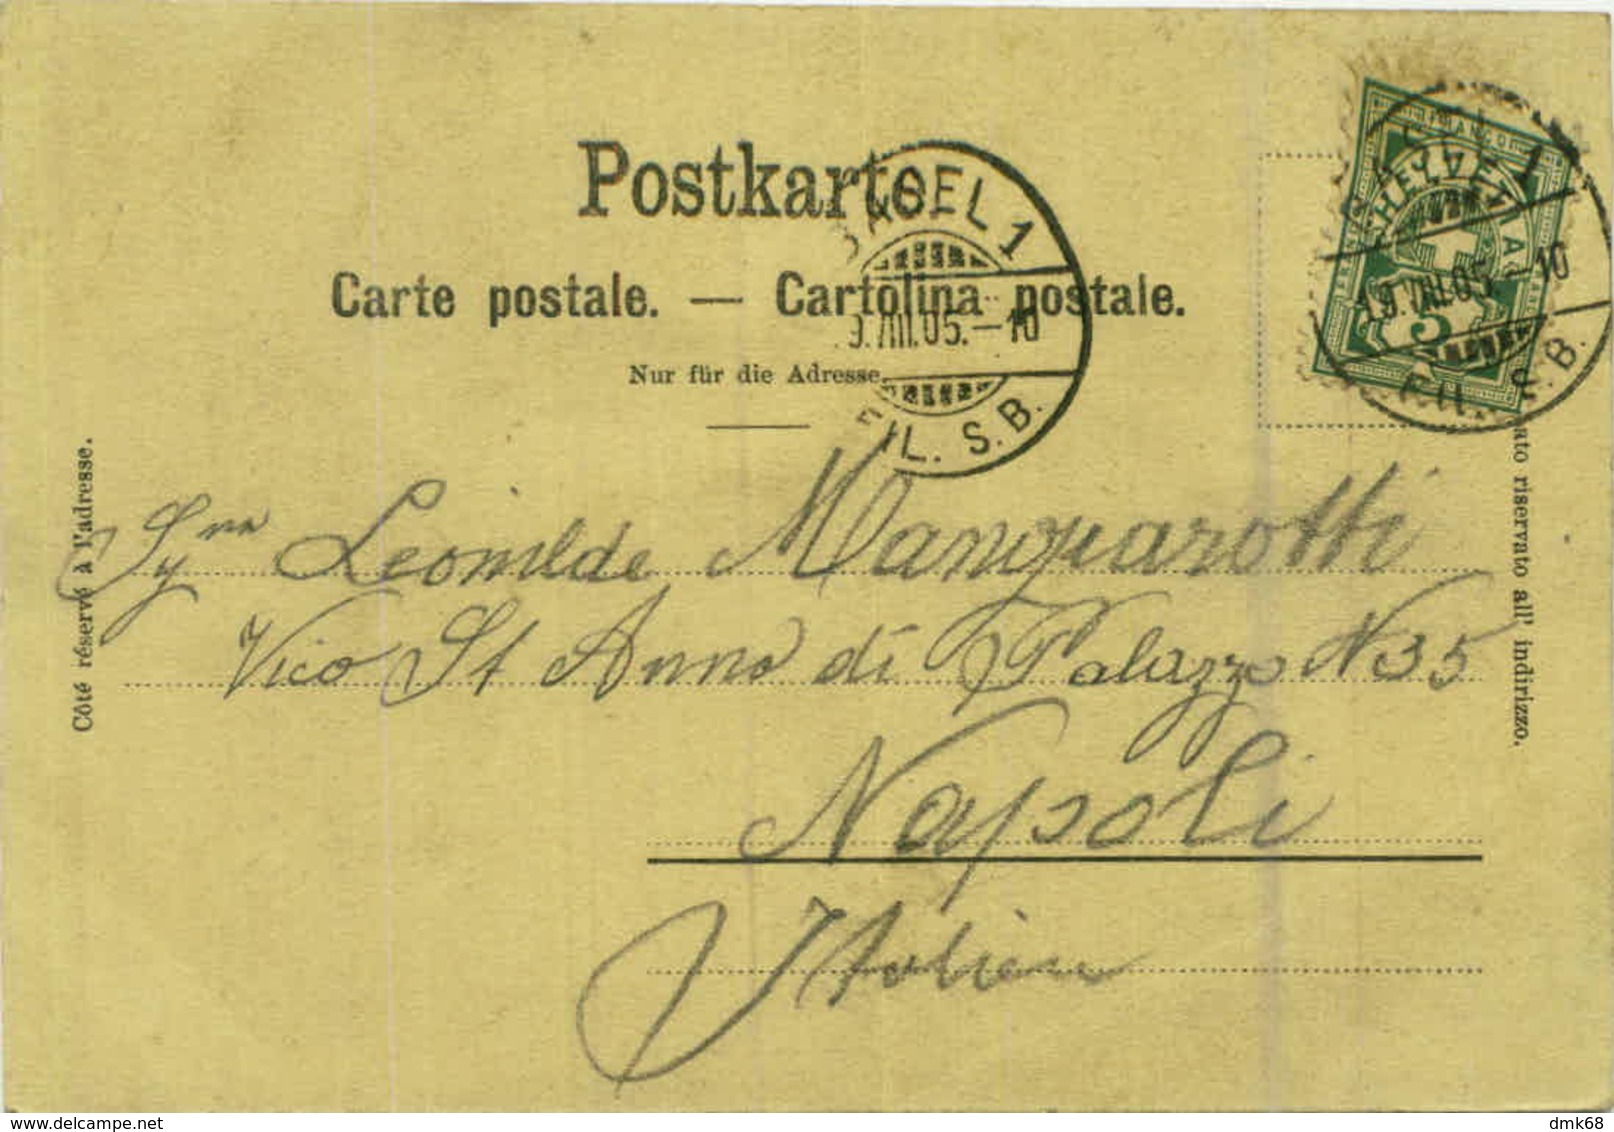 Postkarte
Carte postale. — Cartolina postale.
Nur für die Adresse
BASEL 1
9.VIII.05.–10
FIL. S.B.
HELVETIA
FRANCO
5
BASEL 1
19.VIII.05.–10
FIL. S.B.
Côté réservé à l'adresse.
Lato riservato all' indirizzo.
Leonilde Manguarotti
Vico St Anna di Palazzo N 35
Napoli
Italien
delcampe.net
dmk68